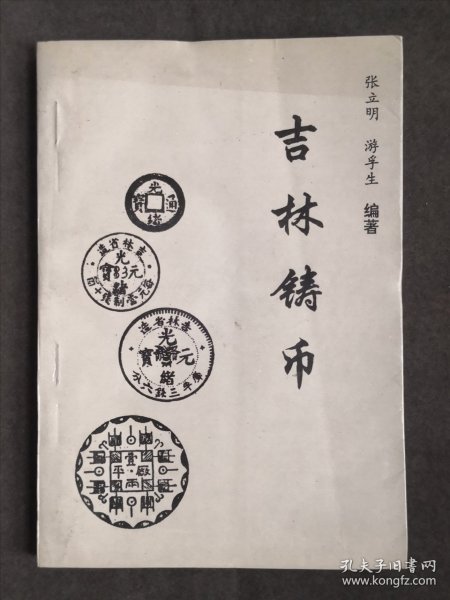 张立明 游孚生 编著
吉林铸币
光绪通寶
吉林省造
光绪元寶
吉林省造
光绪元寶
庫平三錢六分
厰平壹兩
孔夫子旧书网
www.kongfz.com